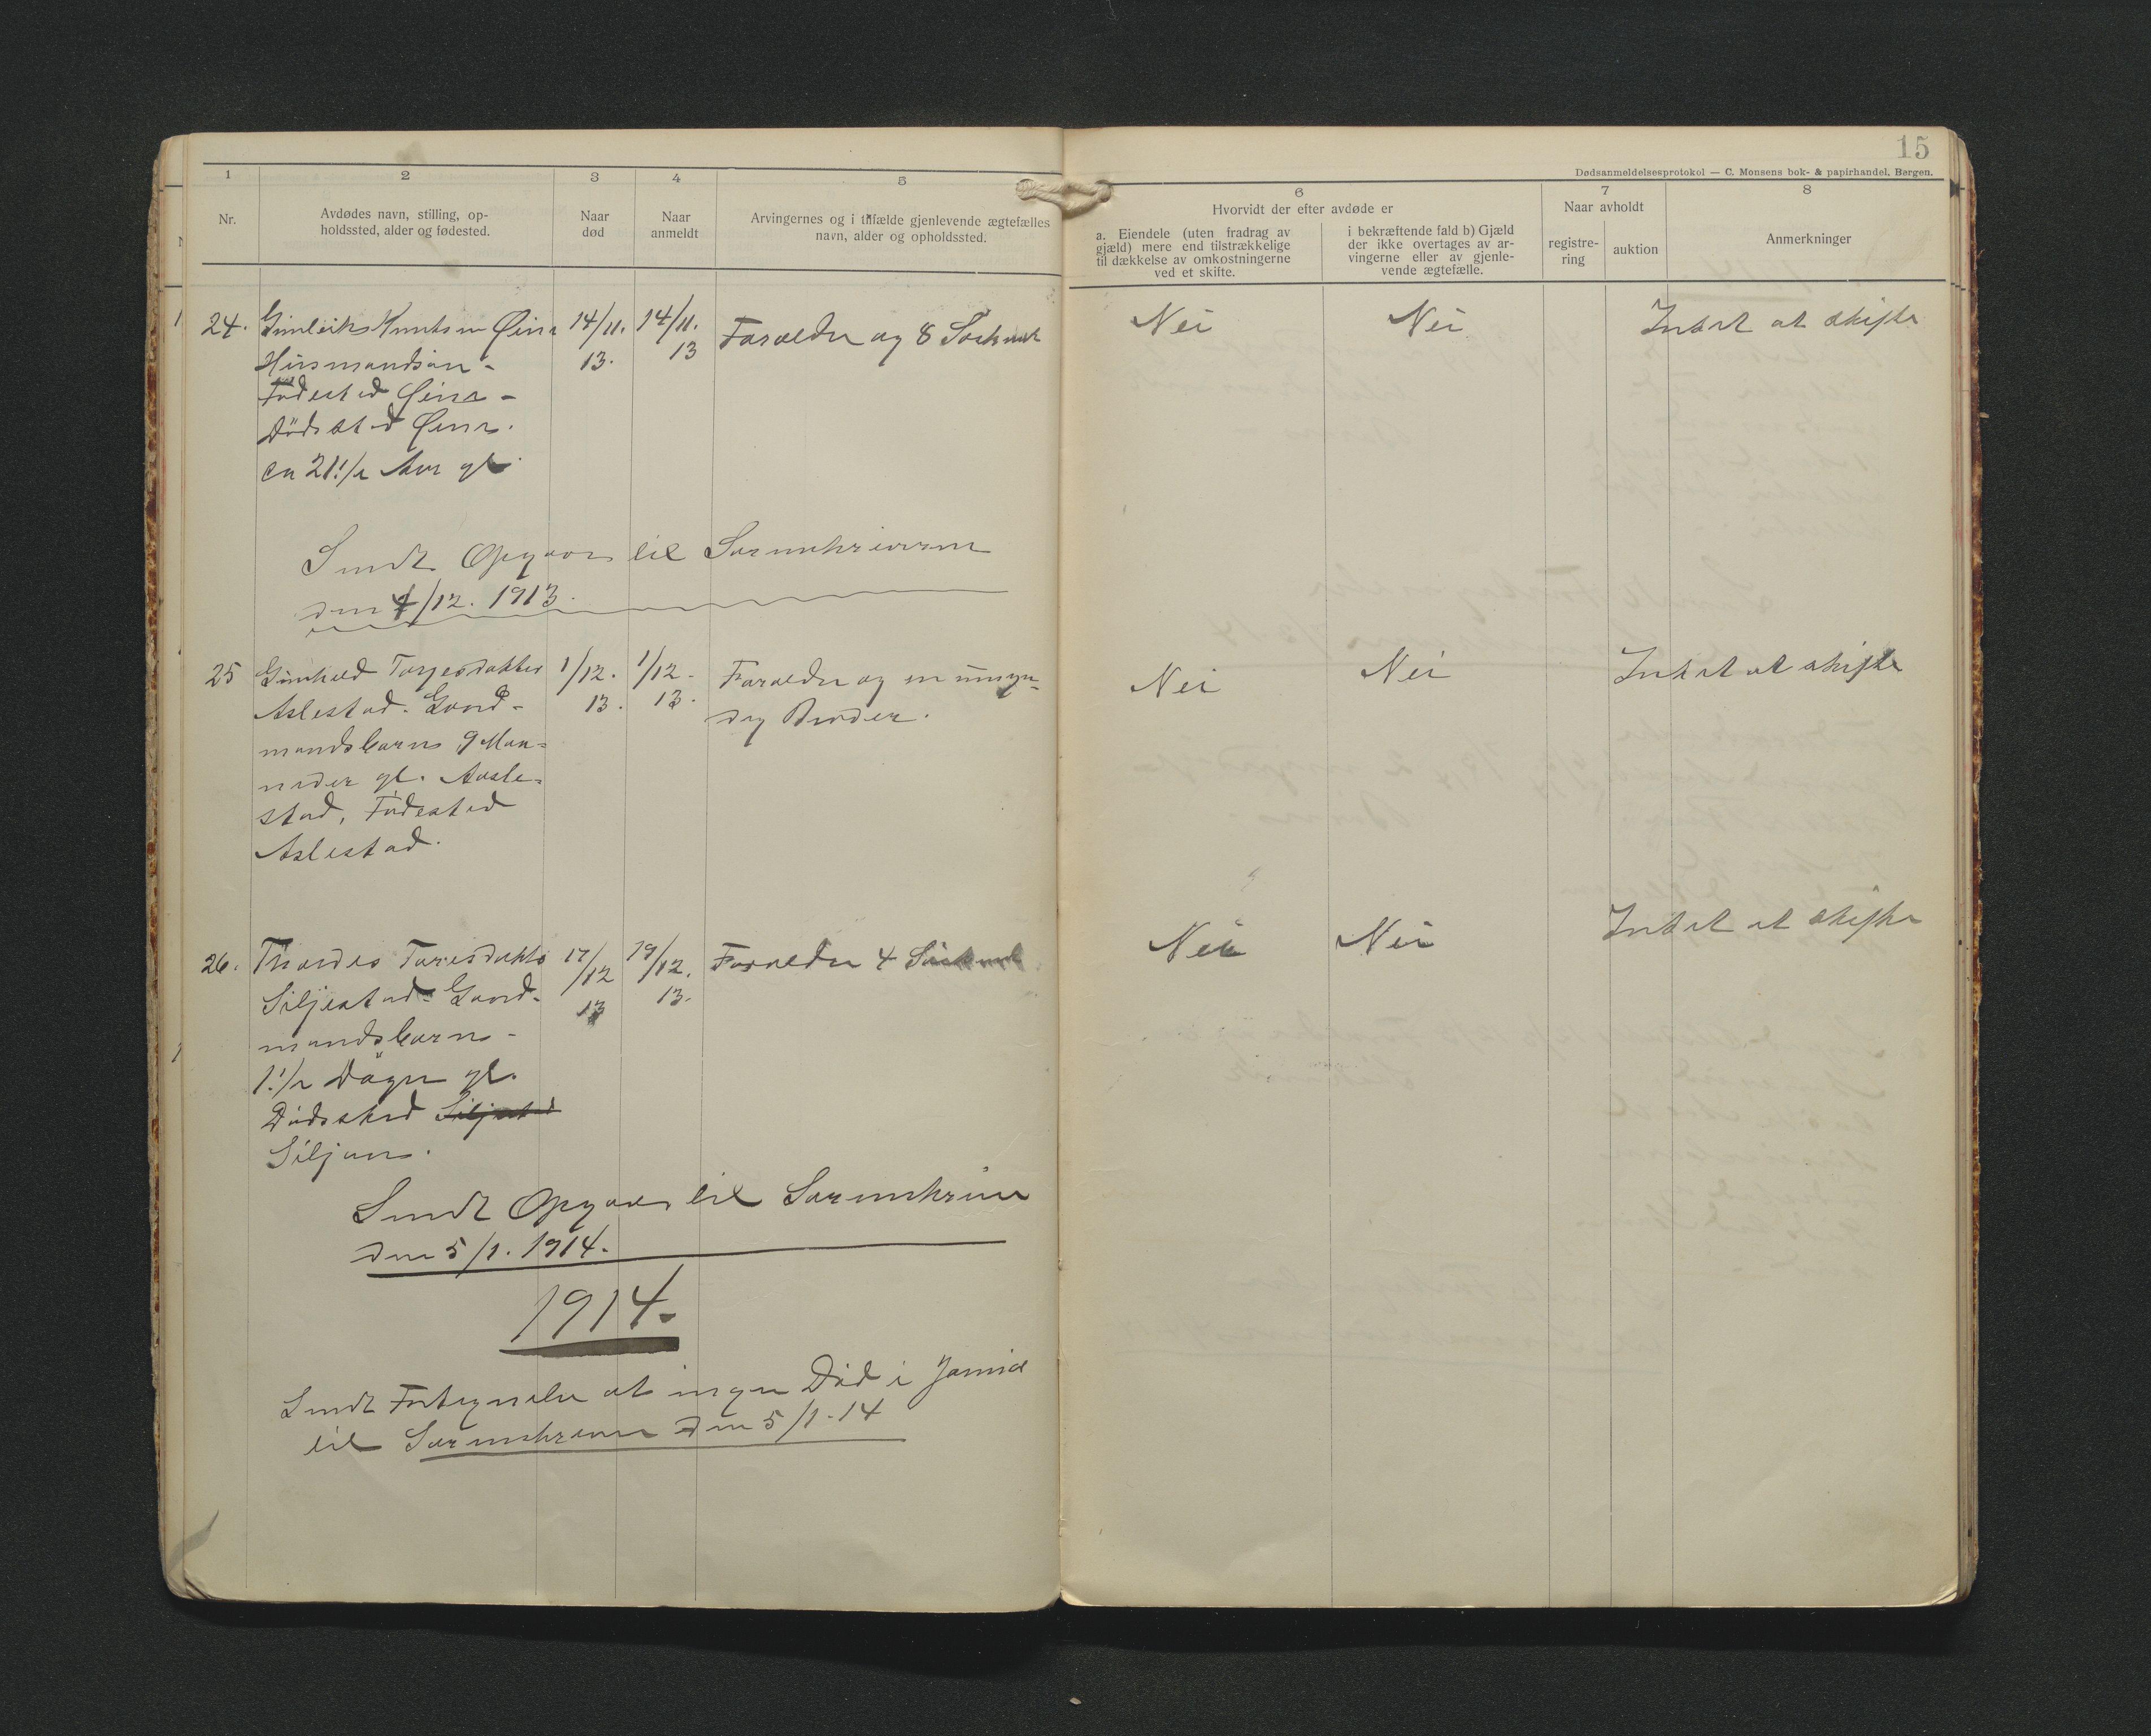 15
Dødsanmeldelsesprotokol — C. Monsens bok- & papirhandel, Bergen.
1 2 3 4 5 6 7 8
Nr.
Avdødes navn, stilling, op-
holdssted, alder og fødested.
Naar
død
Naar
anmeldt
Arvingernes og i tilfælde gjenlevende ægtefælles
navn, alder og opholdssted.
Hvorvidt der efter avdøde er
a. Eiendele (uten fradrag av
gjæld) mere end tilstrækkelige
til dækkelse av omkostningerne
ved et skifte.
i bekræftende fald b) Gjæld
der ikke overtages av ar-
vingerne eller av gjenle-
vende ægtefælle.
Naar avholdt
registre-
ring
auktion
Anmerkninger
24. Gunleik Knutsen 14/11. 14/11. Forældre og 8 Søskend Nei Nei Intet at skifte
Husmandsøn - 13. 13
Fødested -
Dødsted
ca 21 1/2 Aar gl.
Sendt Opgave til Sorenskriveren
den 4/12. 1913.
25 Gunhild Torjesdatter 1/12. 1/12. Forældre og en umyn- Nei Nei Intet at skifte
Aslestad. Gard- 13. 13. dig Broder.
mandsbarn 9 Maa-
neder gl. Aasle-
stad, Fødested
Aslestad.
26. Thordis Taresdatter 17/12 19/12. Forældre 4 Søskend Nei Nei Intet at skifte
Siljestad. Gard- 13 13.
mandsbarn -
1 1/2 Døgn gl.
Dødssted Siljestad
Siljan.
Sendt Opgave til Sorenskriver
den 5/1. 1914.
1914.
Sendt Fortegnelse at ingen Død i
til Sorenskriver den 5/1-14